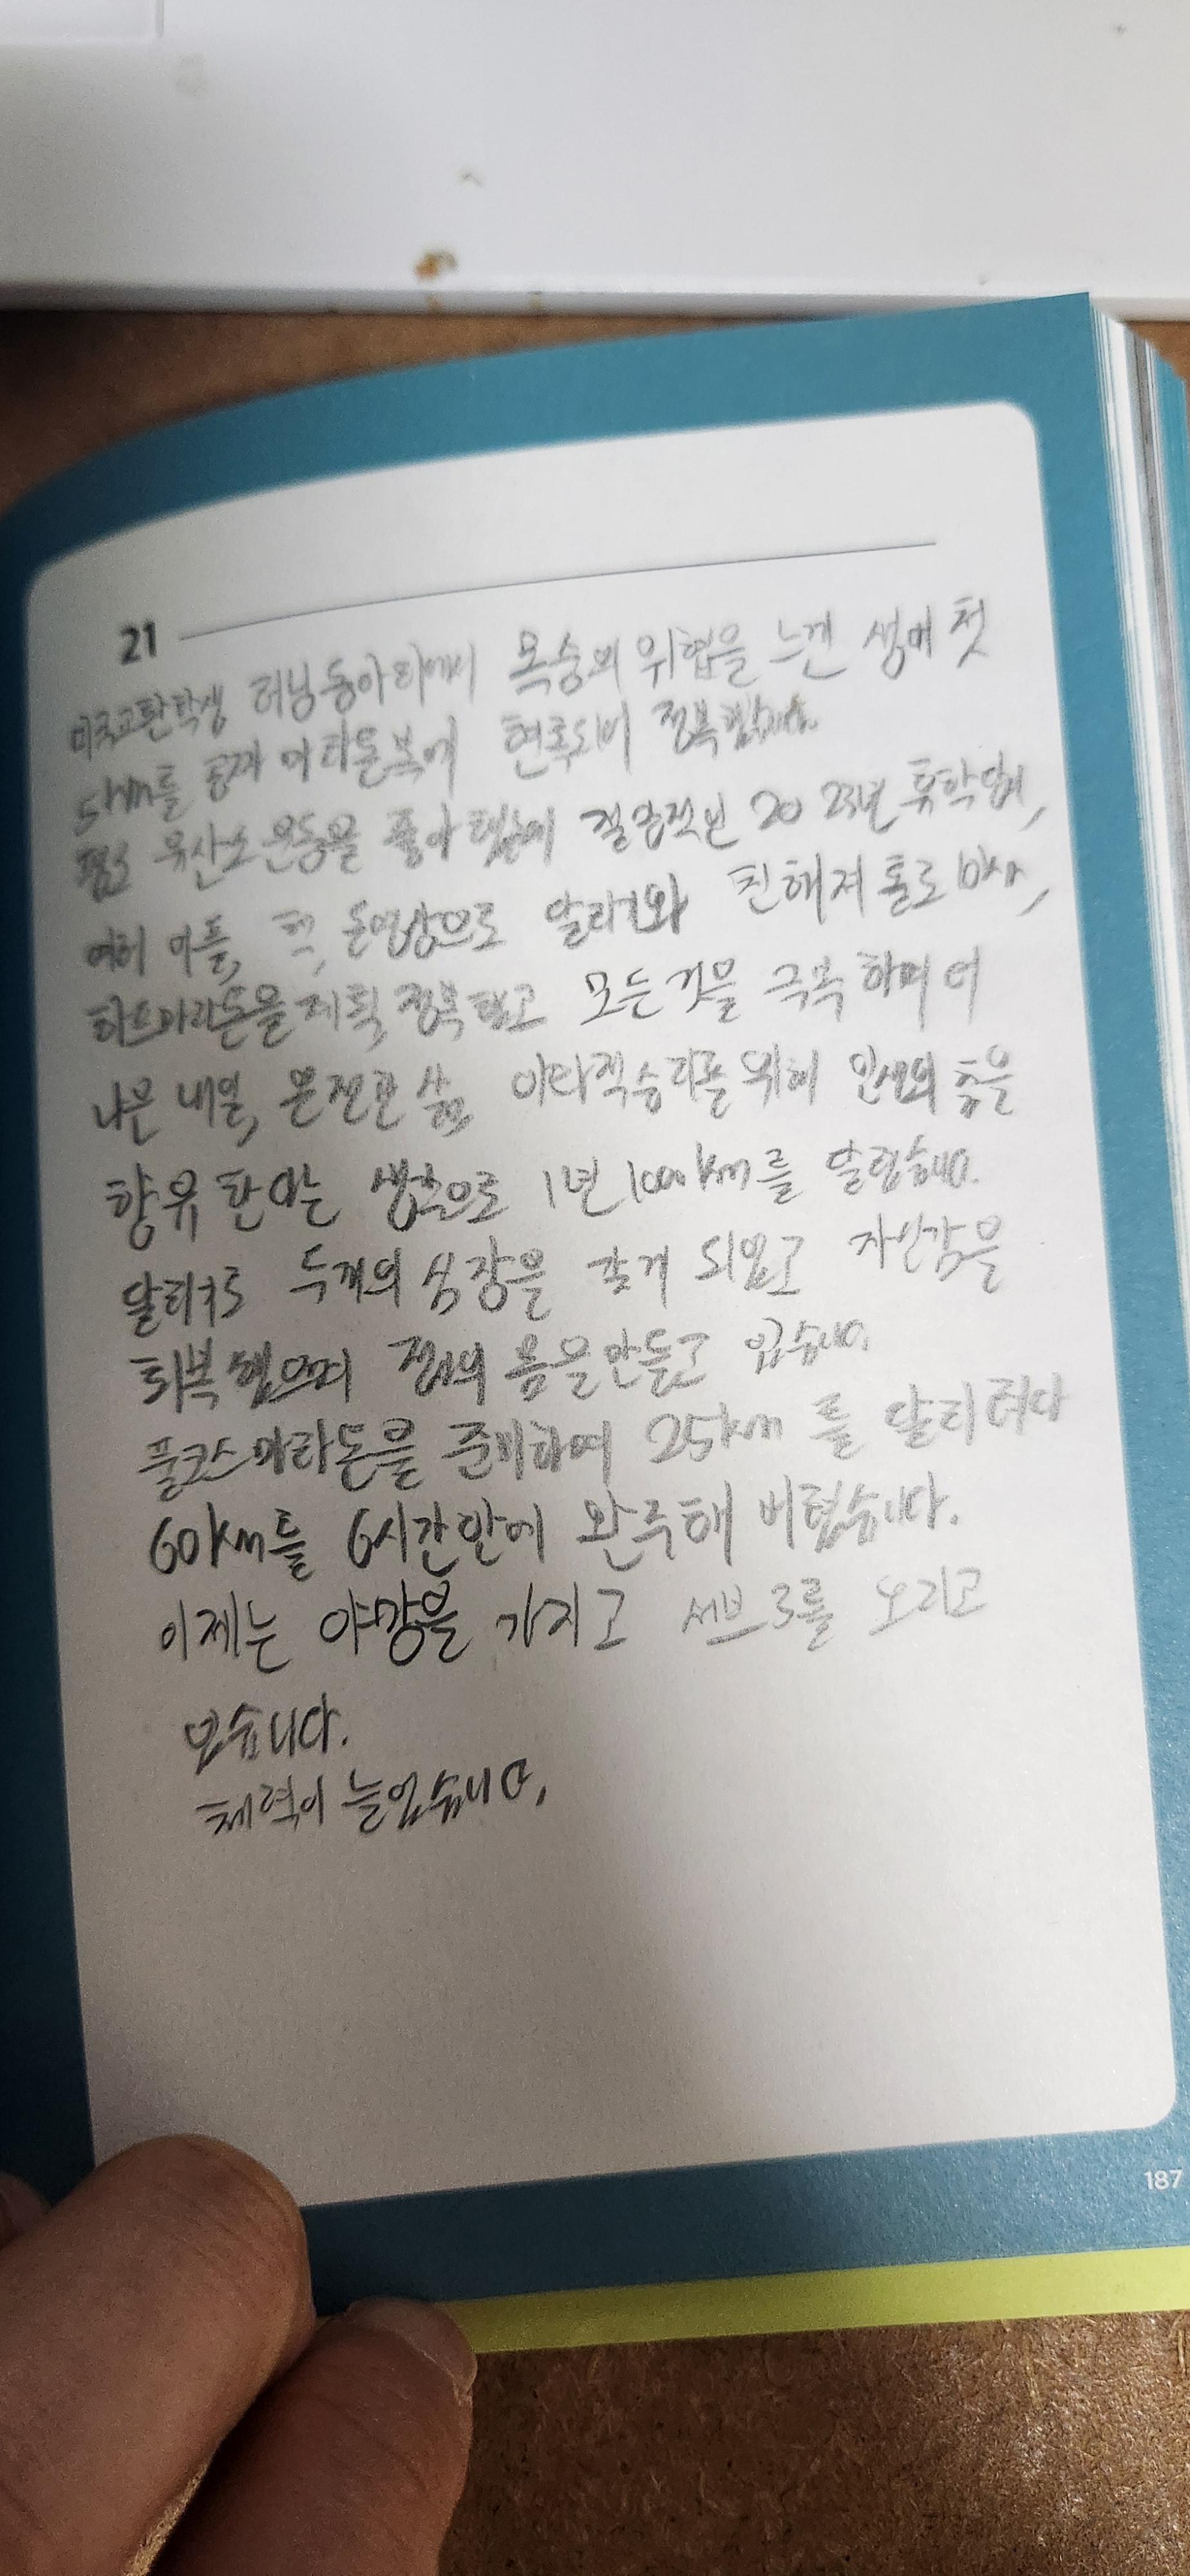 21
미국교환학생 러닝동아리에서 목숨의 위협을 느낀 생애 첫
5km를 공짜 마라톤복에 현혹되어 정복했습니다.
평소 유산소운동을 좋아했는데 절망적인 2023년 휴학일때,
여러 어플, 책, 동영상으로 달리기와 친해져 홀로 10km,
하프마라톤을 계획, 정복했고 모든것을 극복하며 더
나은 내일, 온전한 삶, 이타적 승리를 위해 인생의 춤을
향유한다는 생각으로 1년 1000km를 달렸습니다.
달리기로 두개의 심장을 갖게 되었고 자신감을
회복했으며 전사의 몸을 만들고 있습니다.
풀코스마라톤을 준비하며 25km를 달리려다
60km를 6시간안에 완주해 버렸습니다.
이제는 야망을 가지고 서브3를 노리고
있습니다.
체력이 늘었습니다.
187